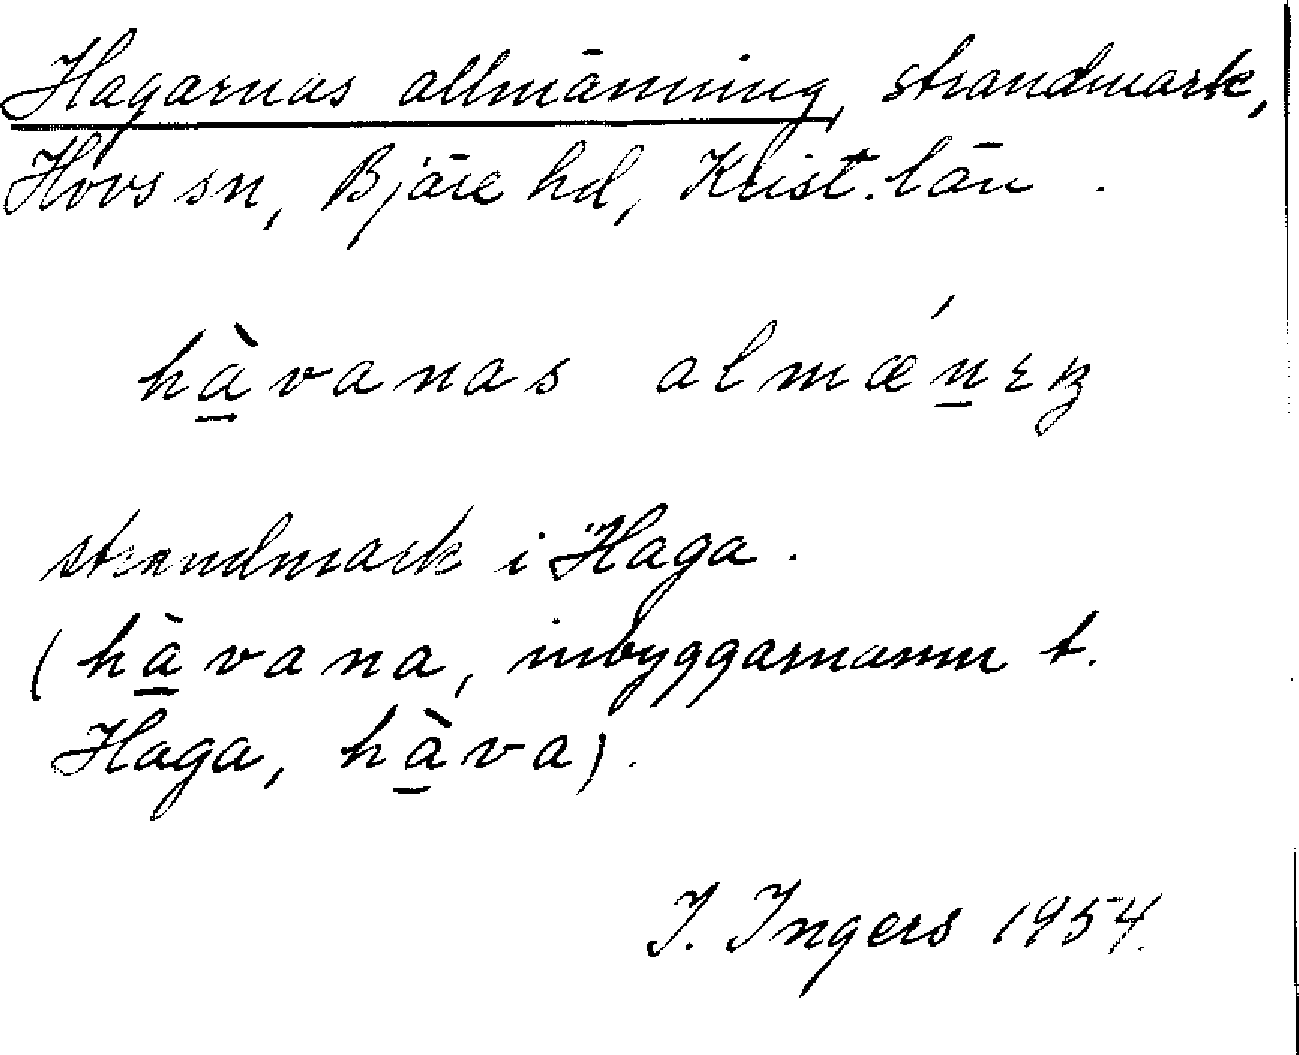 Hagarnas allmänning, strandmark,
Hovs sn, Bjäre hd, Krist. län.
hà̱vanas almǽṉɪŋ
strandmark i Haga.
(hà̱vana, inbyggarnamn t.
Haga, hà̱va).
I. Ingers 1954.